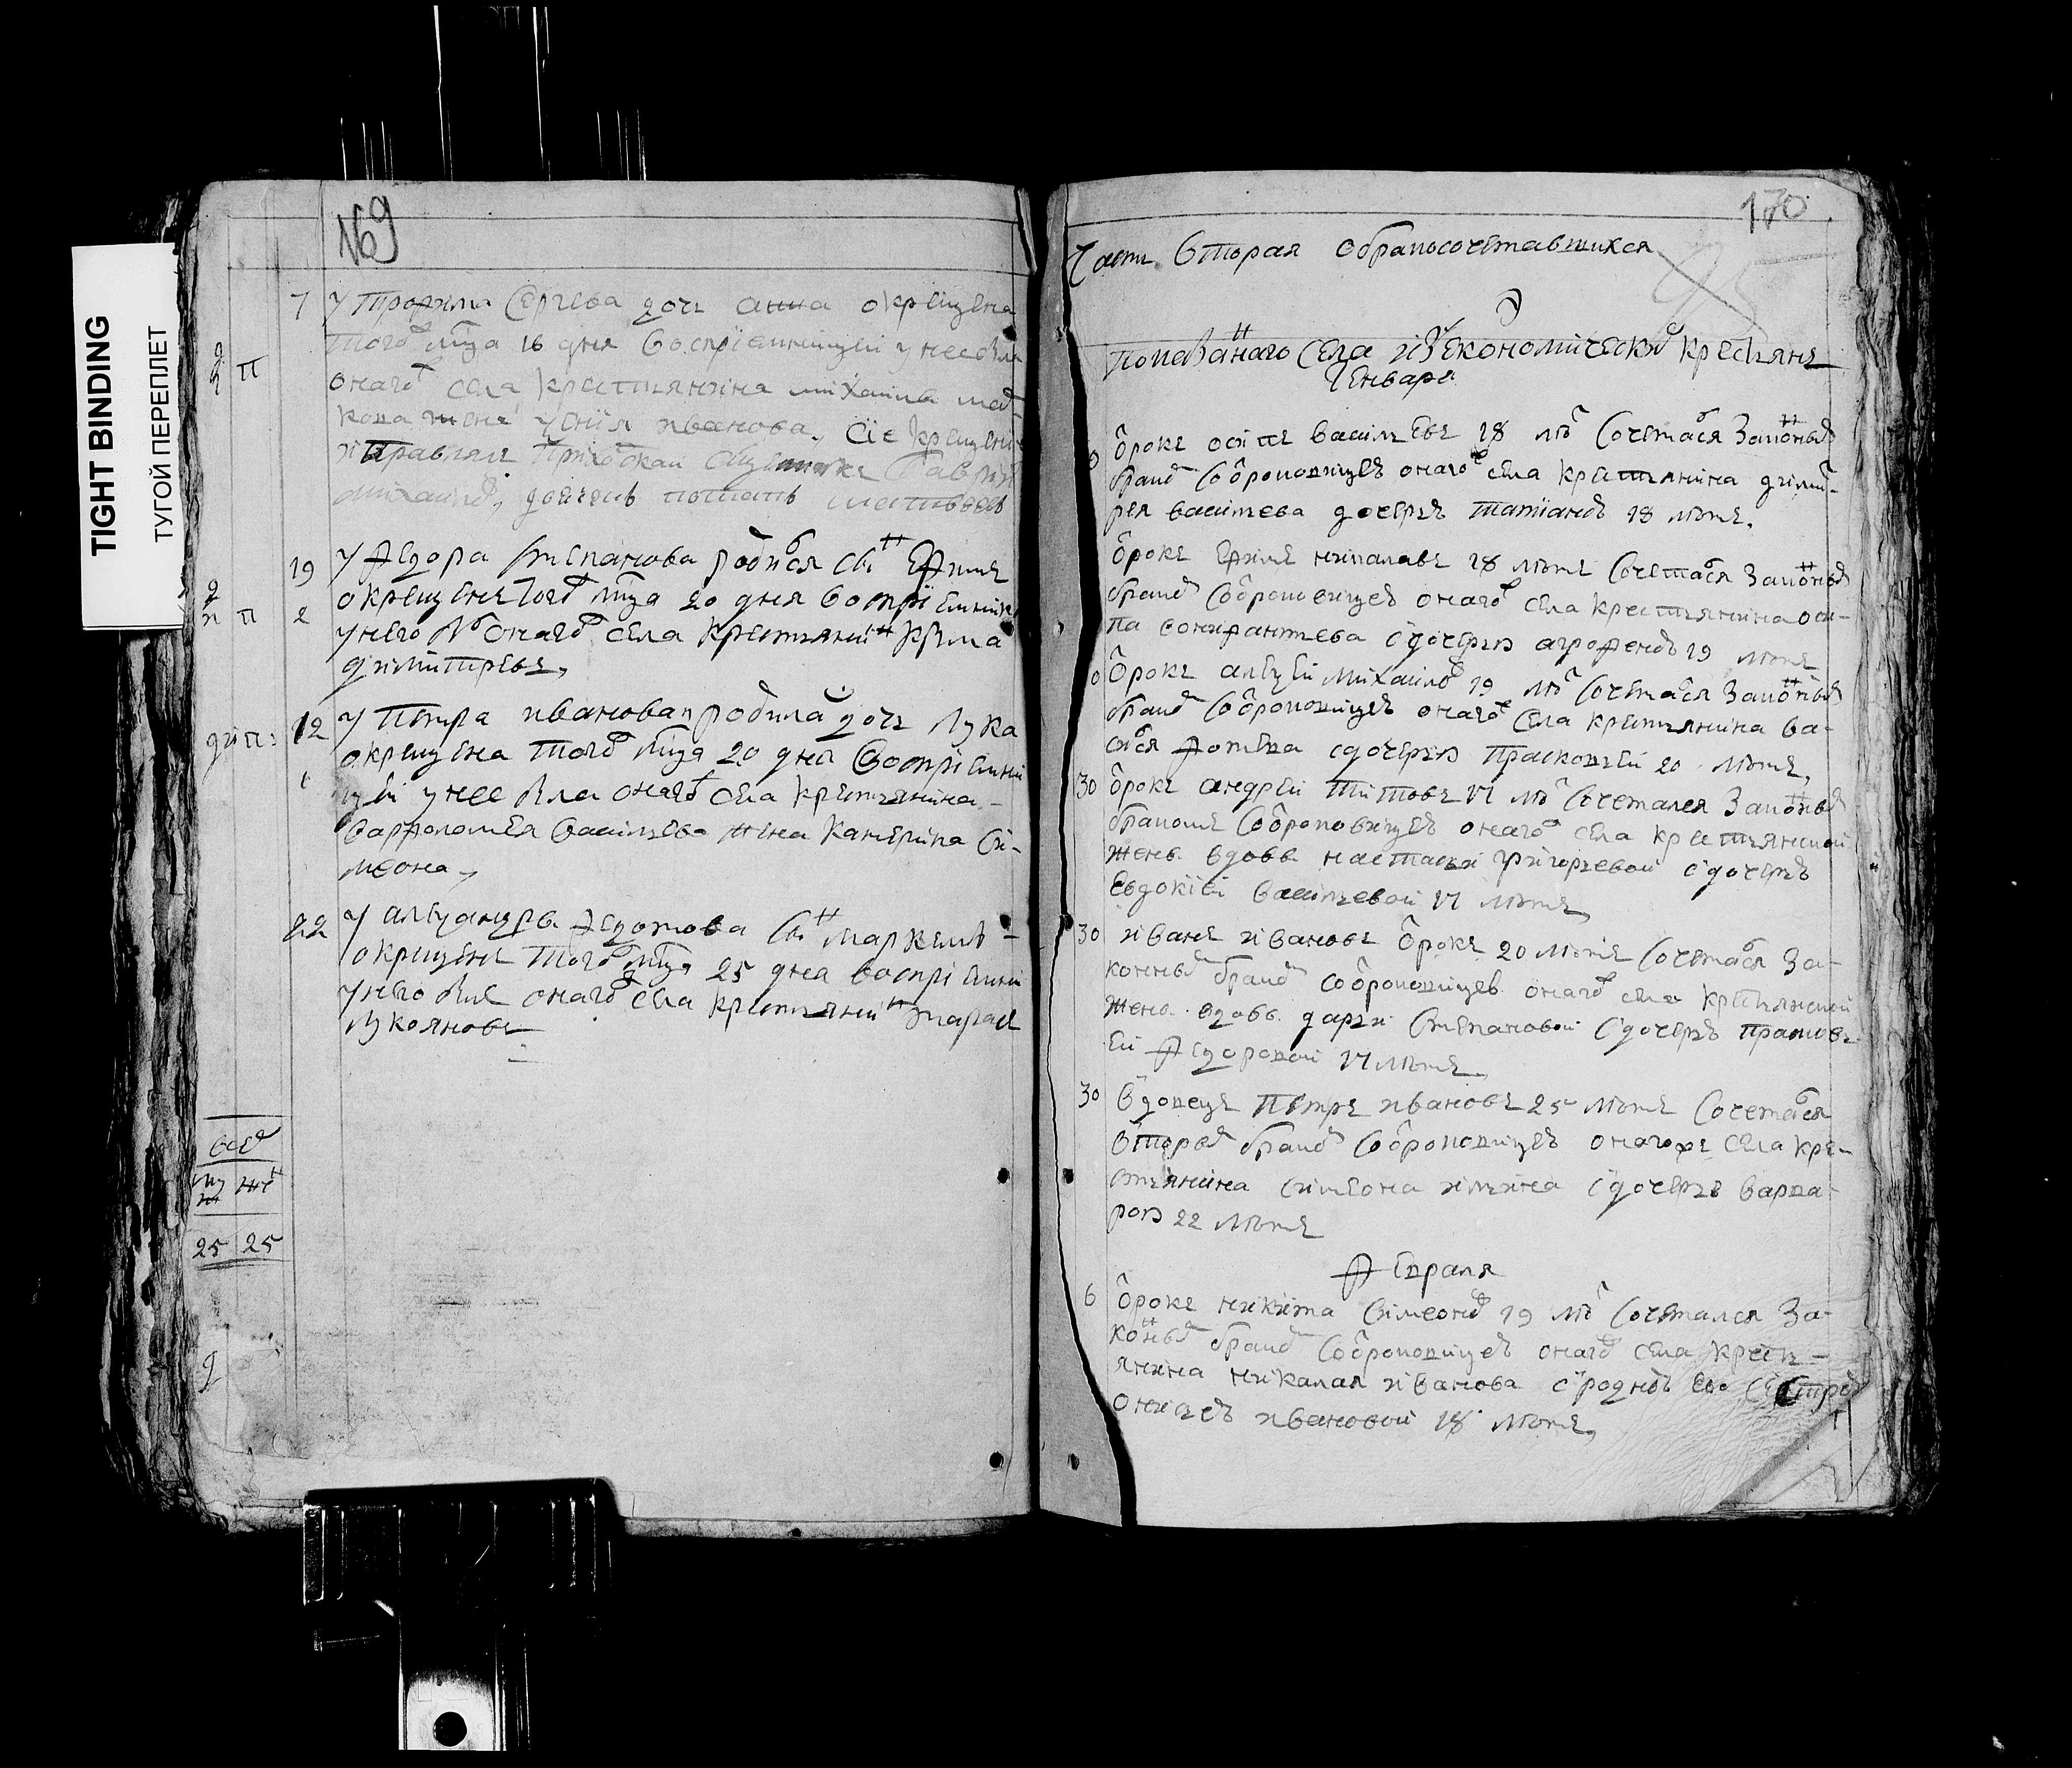 TIGHT BINDING
ТУГОЙ ПЕРЕПЛЕТ
169
7 У Трофима Сергева дочь анна окрещена
того мца 16 дня воспрiемницей у нее была
онаго села крестьянина михаила
жена иванова. Сiе крещенi
исправлял Приходской Гаврил
михаилов,
19 У Федора Степанова родился сын Ефим
окрещен того мца 20 дня воспрiемник
у него был онаго села крестьянин Кузма
димитрев,
12 У Петра иванова родила дочь Лука
окрещена того мца 20 дня воспрiемни
цей у нее была онаго села крестьянина
варфоломея васильева жена Катерина Си-
меона,
22 У алеѯандра Федотова сын маркел
окрещен того мца 25 дня воспрiемни
у него был онаго села крестьянин тарас
Лукоянов
всего
му же
25 25
170
Часть Вторая О бракосочетавшихся
95
показанаго Села из Економических крестьян
Генваря
Отрок осип васильев 18 ле сочетася законым
браком со отроковицеѣ онаго села крестьянина дими-
рея васильева дочерѣ татiаноѣ 18 лет,
Отрок Ефим никалаев 18 лет сочетася законым
браком со отроковицеѣ онаго села крестьянина оси-
па с дочерью агрофеноѣ 19 лет
Отрок алеѯей михаилов 19 ле сочетася законым
браком со отроковицеѣ онаго села крестьянина ва-
силья Фотева с дочерью прасковьей 20 лет,
30 Отрок андрей Титов 17 ле сочетался законым
браком со отроковицеѣ онаго села крестьянской
жены вдовы настасьи григорьевой с дочерѣ
Евдокiей васильевой 17 лет,
30 иван иванов отрок 20 лет сочетася За-
конным браком со отроковицеѣ онаго села крестьянской
жены вдовы дарьи Степановой с дочерѣ прасков
ей Федоровой 17 лет,
30 Вдовец Петр иванов 25 лет сочетася
вторым браком со отроковицеѣ онагож села кре-
стьянина симеона ильина с дочерью варва-
рою 22 лет
Февраля
6 Отрок никита Симеонов 19 ле сочетался За-
коным браком со отроковицеѣ онаго села крест-
янина никалая иванова с родноѣ ево сестроѣ
ивановой 18 лет,